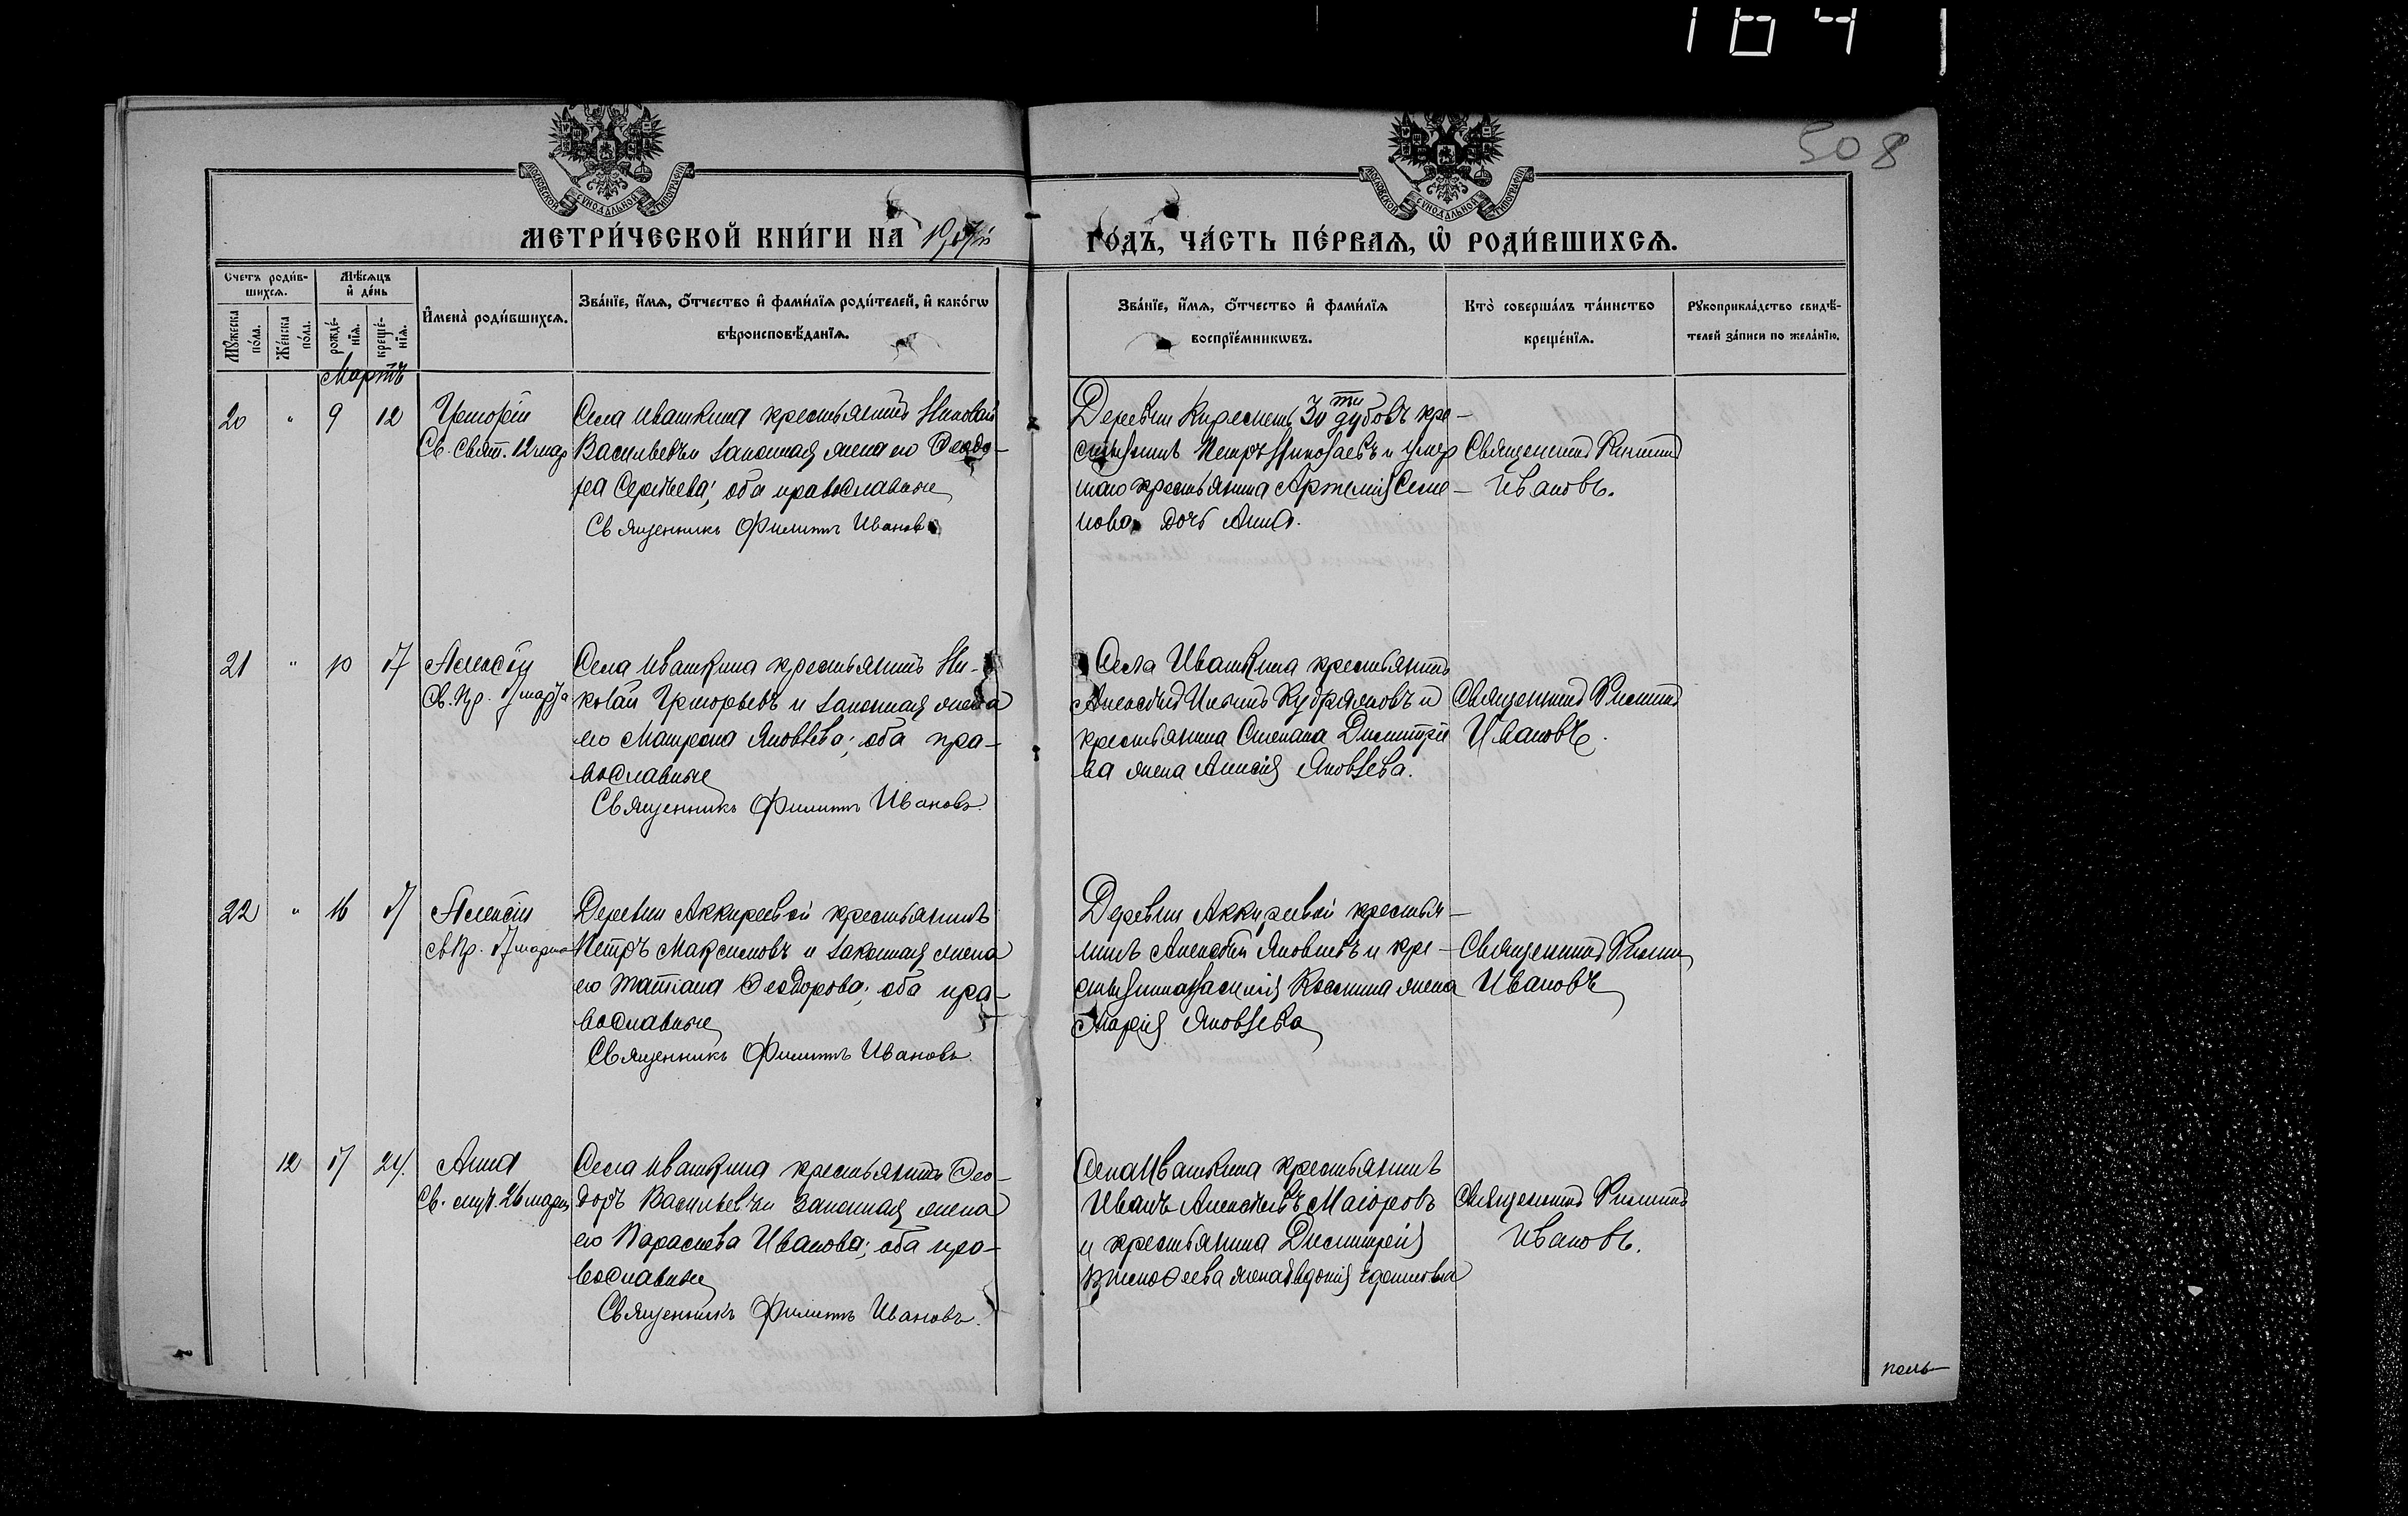 1641
508
МОСКОВСКОЙ СУНОДАЛЬНОЙ ТИПОГРАФІИ
МОСКОВСКОЙ СУНОДАЛЬНОЙ ТИПОГРАФІИ
МЕТРИ́ЧЕСКОЙ КНИ́ГИ НА
ГО́ДЪ, ЧА́СТЬ ПЕ́РВАѦ, Ѡ҆ РОДИ́ВШИХСѦ.
Счетъ роди́в-
шихсѧ.
Мѣ́сѧцъ
и҆ де́нь
Мꙋ́жеска по́ла.
Же́нска по́ла.
рожде́-
нїѧ.
креще́-
нїѧ.
И҆мена̀ роди́вшихсѧ.
Зва́нїе, и҆́мѧ, ѻ҆́тчество и҆ фами́лїѧ роди́телей, и҆ како́гѡ
вѣроисповѣ́данїѧ.
Зва́нїе, и҆́мѧ, ѻ҆́тчество и҆ фами́лїѧ
воспрїе́мникѡвъ.
Кто̀ соверша́лъ та́инство
креще́нїѧ.
Рꙋкоприкла́дство свидѣ́-
телей за́писи по жела́нїю.
Мартъ
20 " 9 12 Григорій Села Ивашкина крестьянинъ Николай
Св. Свят. 12 мар Васильевъ и законная жена его Феодо-
ра Сергѣева; оба православные
Священникъ Филиппъ Ивановъ
Деревни 30 ти дубовъ кре-
стьянинъ Петръ Николаевъ и умер
шаго крестьянина Артемія Семе-
нова дочь Анна.
Священникъ Филиппъ
Ивановъ.
21 " 10 17 Алексѣй Села Ивашкина крестьянинъ Ни-
Св. Пр. 17 марта колай Григорьевъ и законная жена
его Матрона Яковлева; оба пра-
вославные
Священникъ Филиппъ Ивановъ.
Села Ивашкина крестьянинъ
Алексѣй Кудряшовъ и
крестьянина Степана Димитріе
ва жена Яковлева.
Священникъ Филиппъ
Ивановъ.
22 " 16 17 Алексій Деревни Аккиреевой крестьянинъ
Св. Пр. 17 марта Петръ Максимовъ и законная жена
его Татіана Феодорова; оба пра-
вославные
Священникъ Филиппъ Ивановъ
Деревни Аккиреевой крестья-
нинъ Алексѣй Яковлевъ и кре-
стьянина Василія Космина жена
Марія Яковлева
Священникъ Филиппъ
Ивановъ
12 17 24. Анна Села Ивашкина крестьянинъ Фео-
Св. 26 марта доръ Васильевъ и законная жена
его Параскева Иванова; оба пра-
вославные
Священникъ Филиппъ Ивановъ.
Села Ивашкина крестьянинъ
Иванъ Алексѣевъ Маіоровъ
и крестьянина Димитрія
Тимофеева жена
Священникъ Филиппъ
Ивановъ.